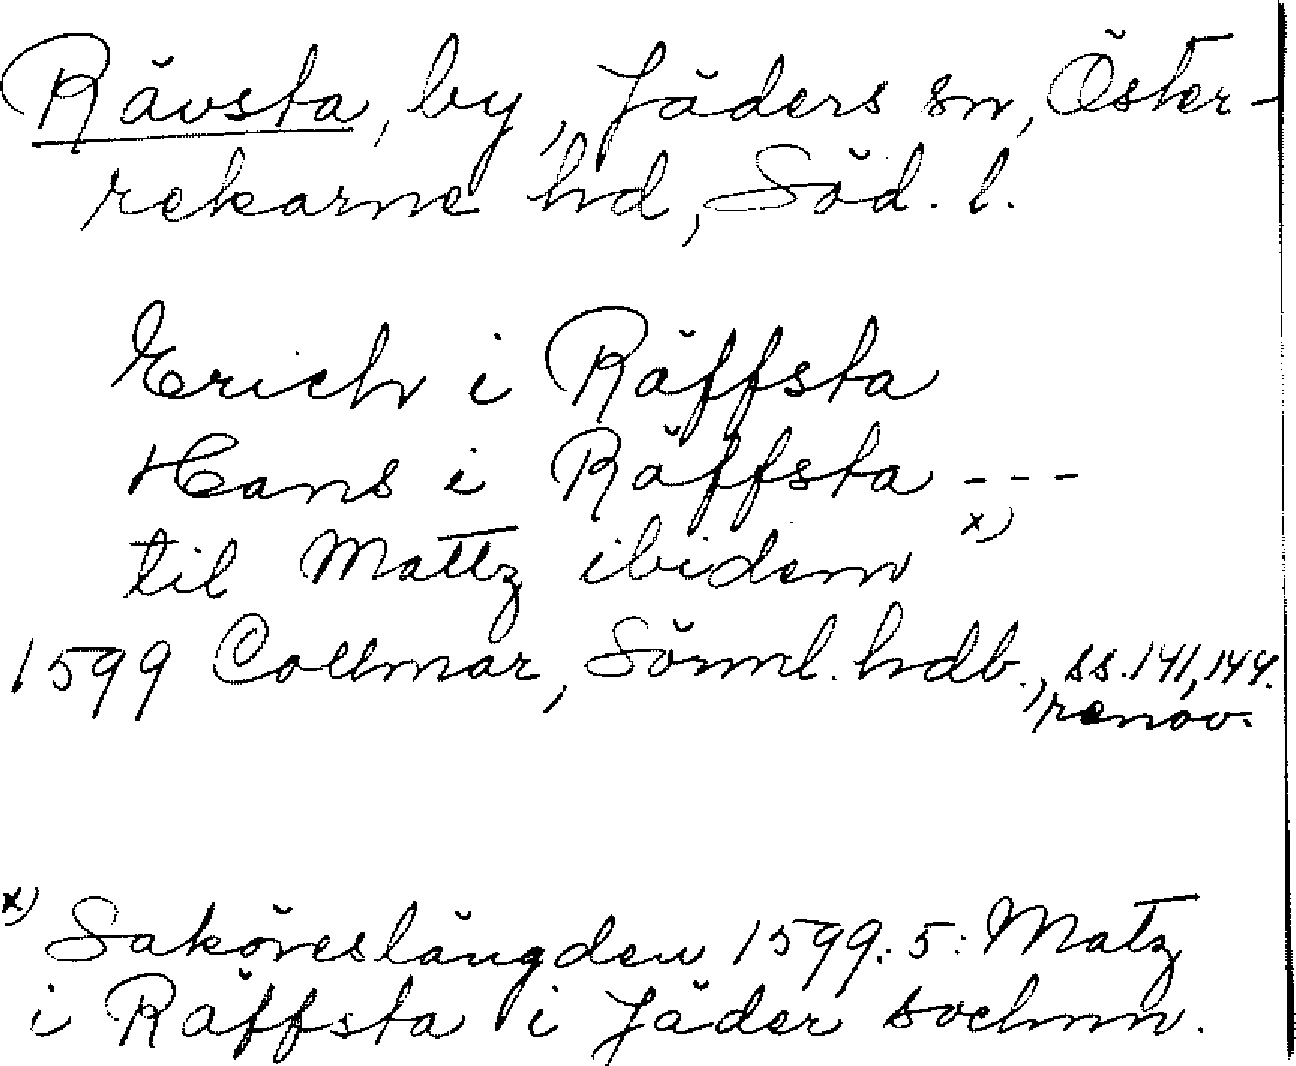 Rävsta, by, Jäders sn, Öster-
rekarne hd, Söd. l.
Erich i Räffsta
Hans i Räffsta ---
til Mattz ibidem x)
1599 Collmar, Sörml. hdb., ss. 141, 144.
renov.
x) Saköreslängden 1599:5: Matz
i Räffsta i Jäder sochnn.